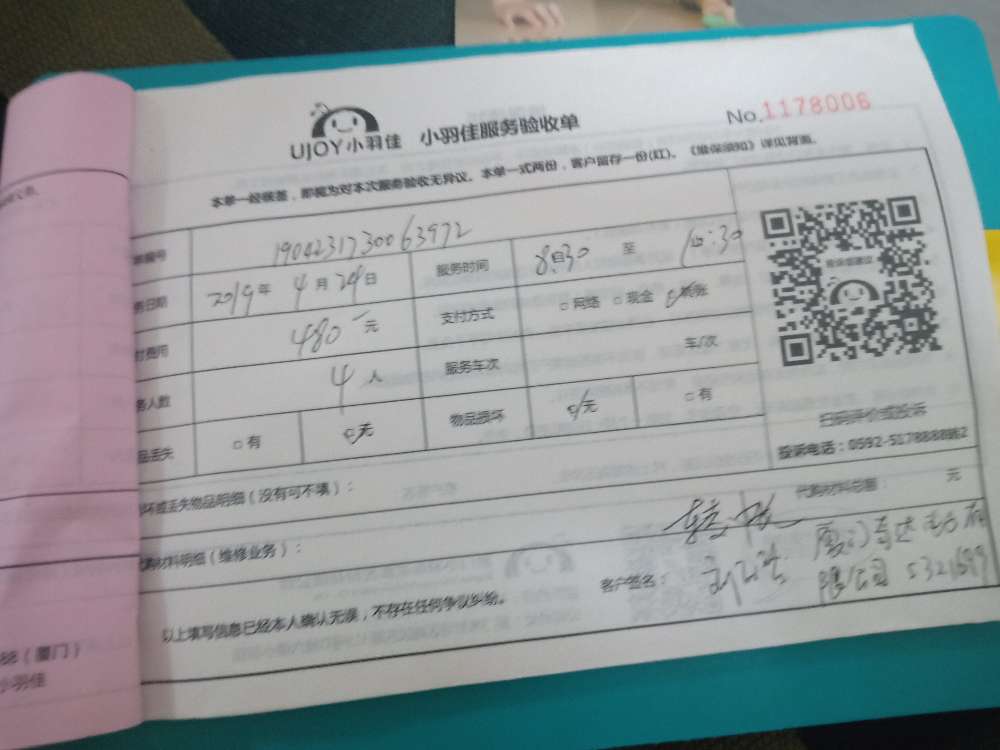 UJOY小羽佳 小羽佳服务验收单 No.1178006
本单一经签签，即视为对本次服务验收无异议。本单一式两份，客户留存一份(红)。《维保须知》详见背面。
编号 1904231730063972
务日期 2019年 4月24日 服务时间 8:30 至 :30
付费用 480元 支付方式 □网络 □现金 转账
务人数 4人 服务车次 车/次
品丢失 □有 无 物品损坏 无 □有
扫码评价或投诉
投诉电话：0592-5178888
坏或丢失物品明细（没有可不填）：
代购材料总额： 元
材料明细（维修业务）：
客户签名：
限公司
以上填写信息已经本人确认无误，不存在任何争议纠纷。
88（厦门）
小羽佳